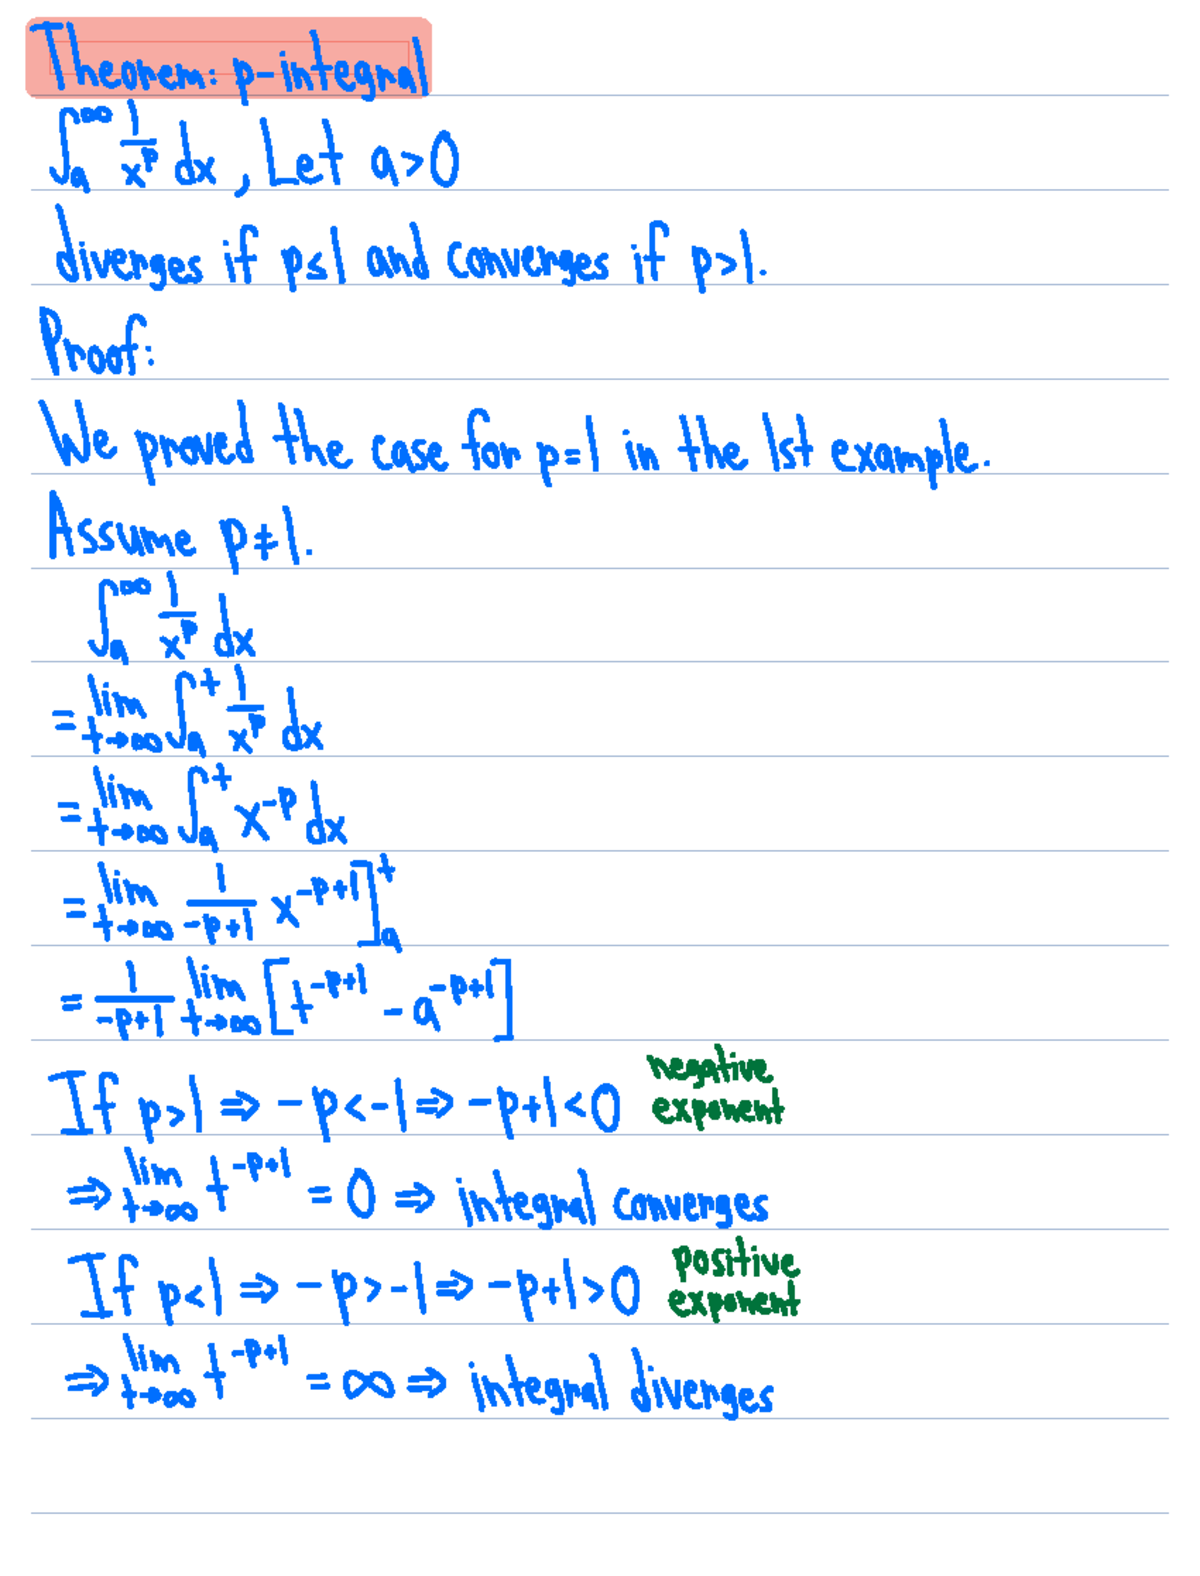 Theorem: p-integral
∫_a^∞ 1/x^p dx, Let a>0
diverges if p≤1 and converges if p>1.
Proof:
We proved the case for p=1 in the 1st example.
Assume p≠1.
∫_a^∞ 1/x^p dx
= lim_{t→∞} ∫_a^t 1/x^p dx
= lim_{t→∞} ∫_a^t x^{-p} dx
= lim_{t→∞} 1/(-p+1) x^{-p+1}]_a^t
= 1/(-p+1) lim_{t→∞} [t^{-p+1} - a^{-p+1}]
If p>1 ⇒ -p<-1 ⇒ -p+1<0 negative exponent
⇒ lim_{t→∞} t^{-p+1} = 0 ⇒ integral converges
If p<1 ⇒ -p>-1 ⇒ -p+1>0 positive exponent
⇒ lim_{t→∞} t^{-p+1} = ∞ ⇒ integral diverges